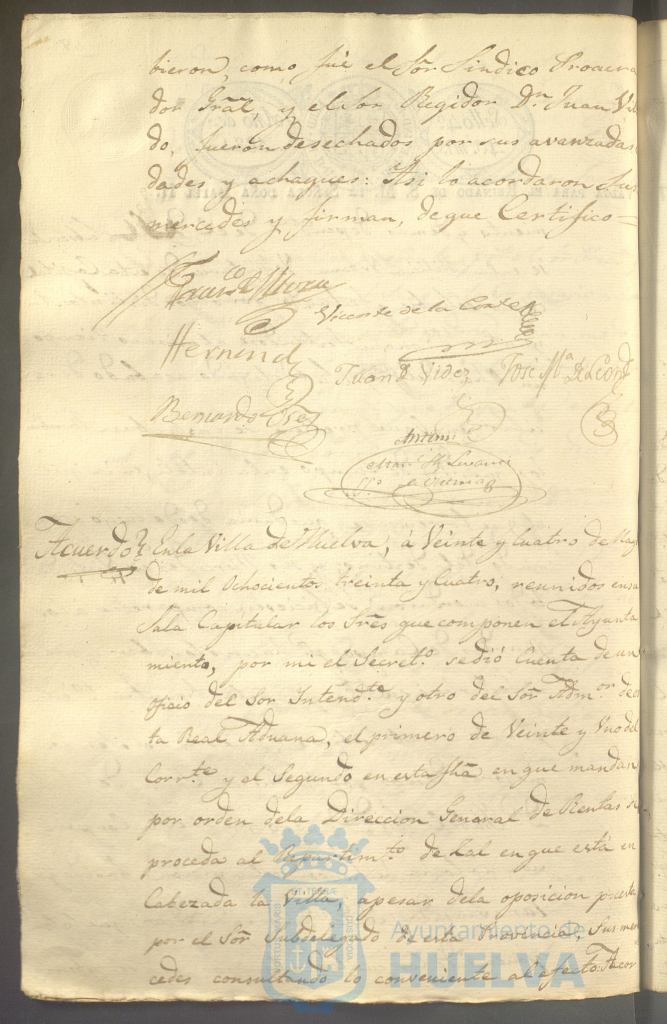 bieron, como fué el Sor Sindico Procura
dor Gral, y el Sor Regidor Dn Juan Vi
do, fueron desechados por sus avanzadas
dades y achaques: Asi lo acordaron Sus
mercedes y firman, de que Certifico =
Vicente de la Corte
Hernand
Juan Videz José Ma de Leon
Bernardo
Antemi
Acuerdo En la Villa de Huelva, á Veinte y Cuatro de May
de mil Ochocientos treinta y Cuatro, reunidos en su
Sala Capitular los Sres que componen el Ayunta
miento, por mi el Secreto se dió Cuenta de un
oficio del Sor Intendte y otro del Sor Admor de es
ta Real Aduana, el primero de Veinte y Uno del
Corrte y el Segundo en esta fha en que mandan
por orden dela Direccion General de Rentas se
proceda al Repartimto de Sal en que está en
Cabezada la Villa, apesar dela oposicion puesta
por el Sor Subdelegado de esta Provincia, Sus mer
cedes consultando lo conveniente al efecto: Acor
Ayuntamiento de
HUELVA